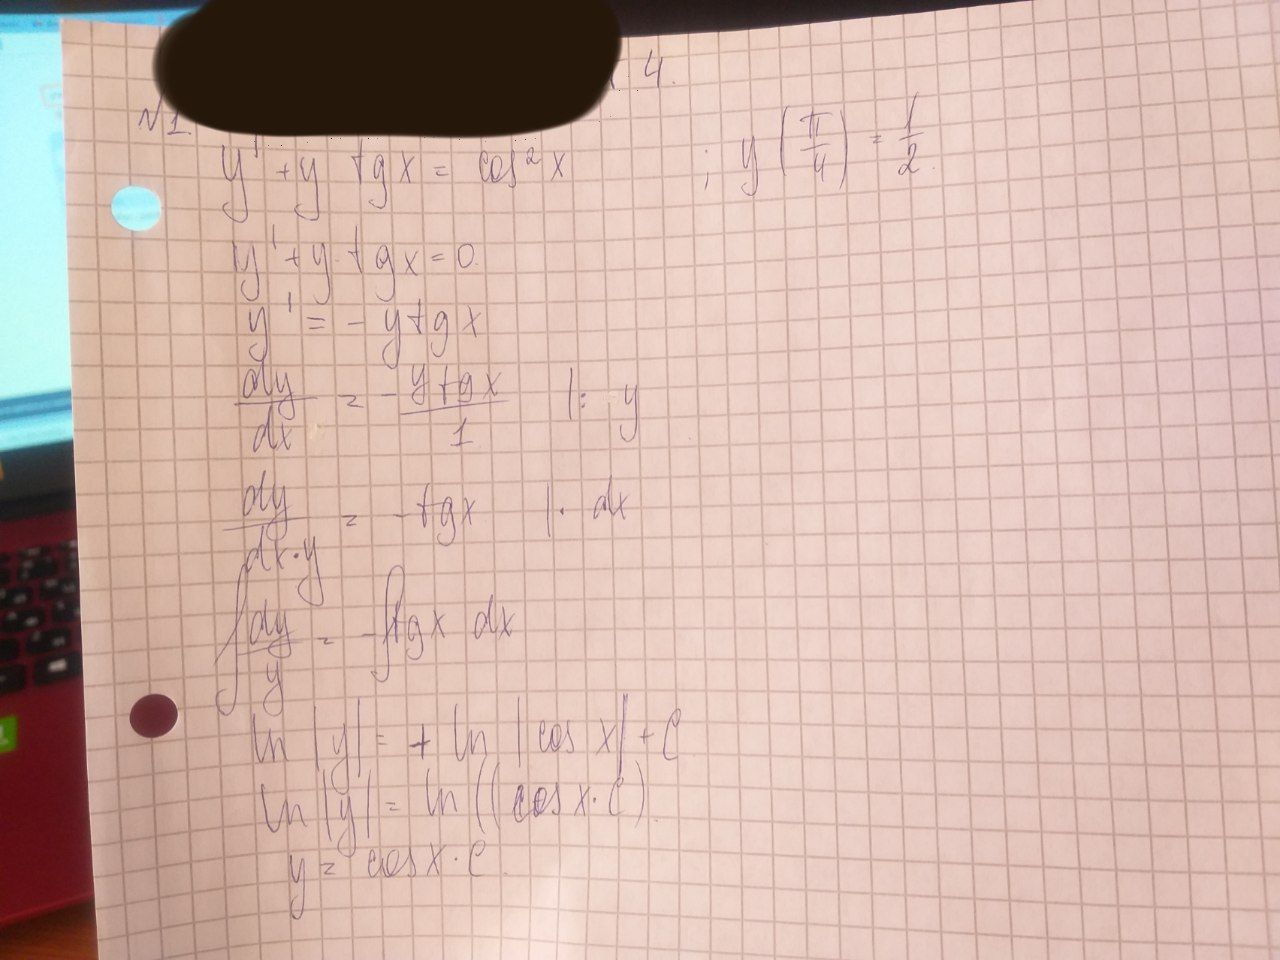 4.
№1.
y' + y tgx = cos²x ; y(π/4) = 1/2.
y' + y·tgx = 0.
y' = - y tgx
dy/dx = - y tgx/1 |: y
dy/dx·y = - tgx |· dx
∫ dy/y = - ∫ tgx dx
ln |y| = + ln |cos x| + C
ln |y| = ln ((cos x·C).
y = cos x·C.